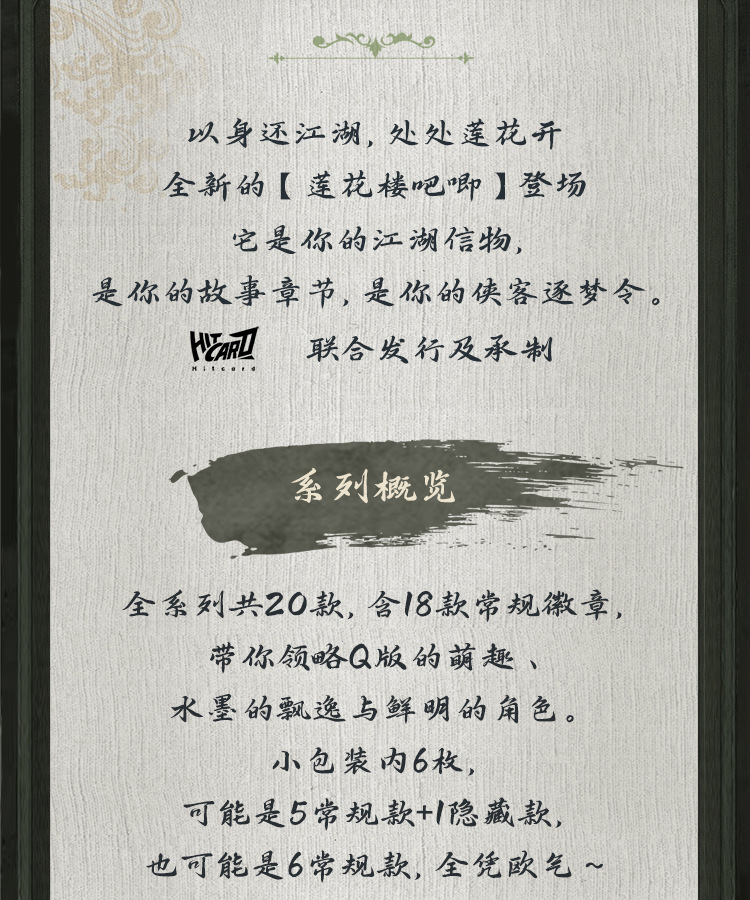 以身还江湖,处处莲花开
全新的【莲花楼吧唧】登场
它是你的江湖信物,
是你的故事章节,是你的侠客逐梦令。
HIT CARD Hitcard 联合发行及承制
系列概览
全系列共20款,含18款常规徽章,
带你领略Q版的萌趣、
水墨的飘逸与鲜明的角色。
小包装内6枚,
可能是5常规款+1隐藏款,
也可能是6常规款,全凭欧气~